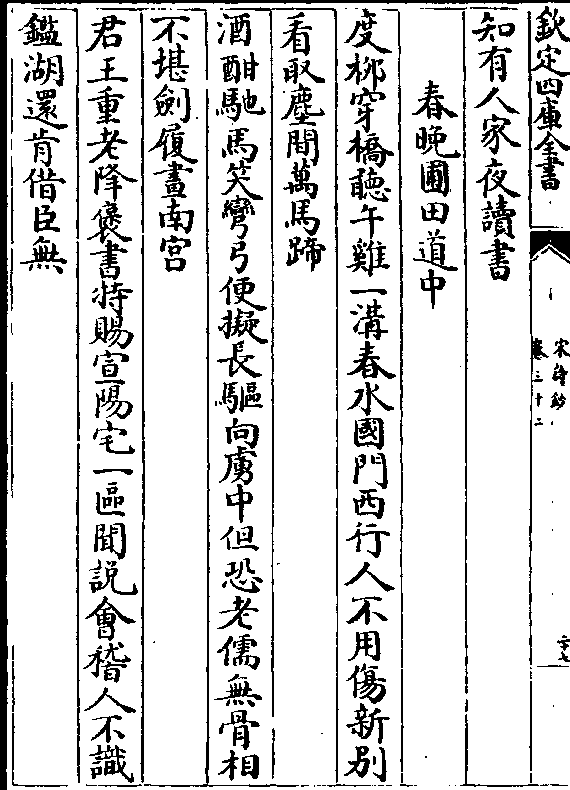 欽定四庫全書
宋詩鈔
卷三十二
二七
知有人家夜讀書
春晚圃田道中
度栁穿橋聽午雞一溝春水國門西行人不用傷新别
看取塵間萬馬蹄
酒酣馳馬笑彎弓便擬長驅向虜中但恐老儒無骨相
不堪劍履畫南宫
君王重老降褒書特賜宣陽宅一區聞說會稽人不識
鑑湖還肯借臣無